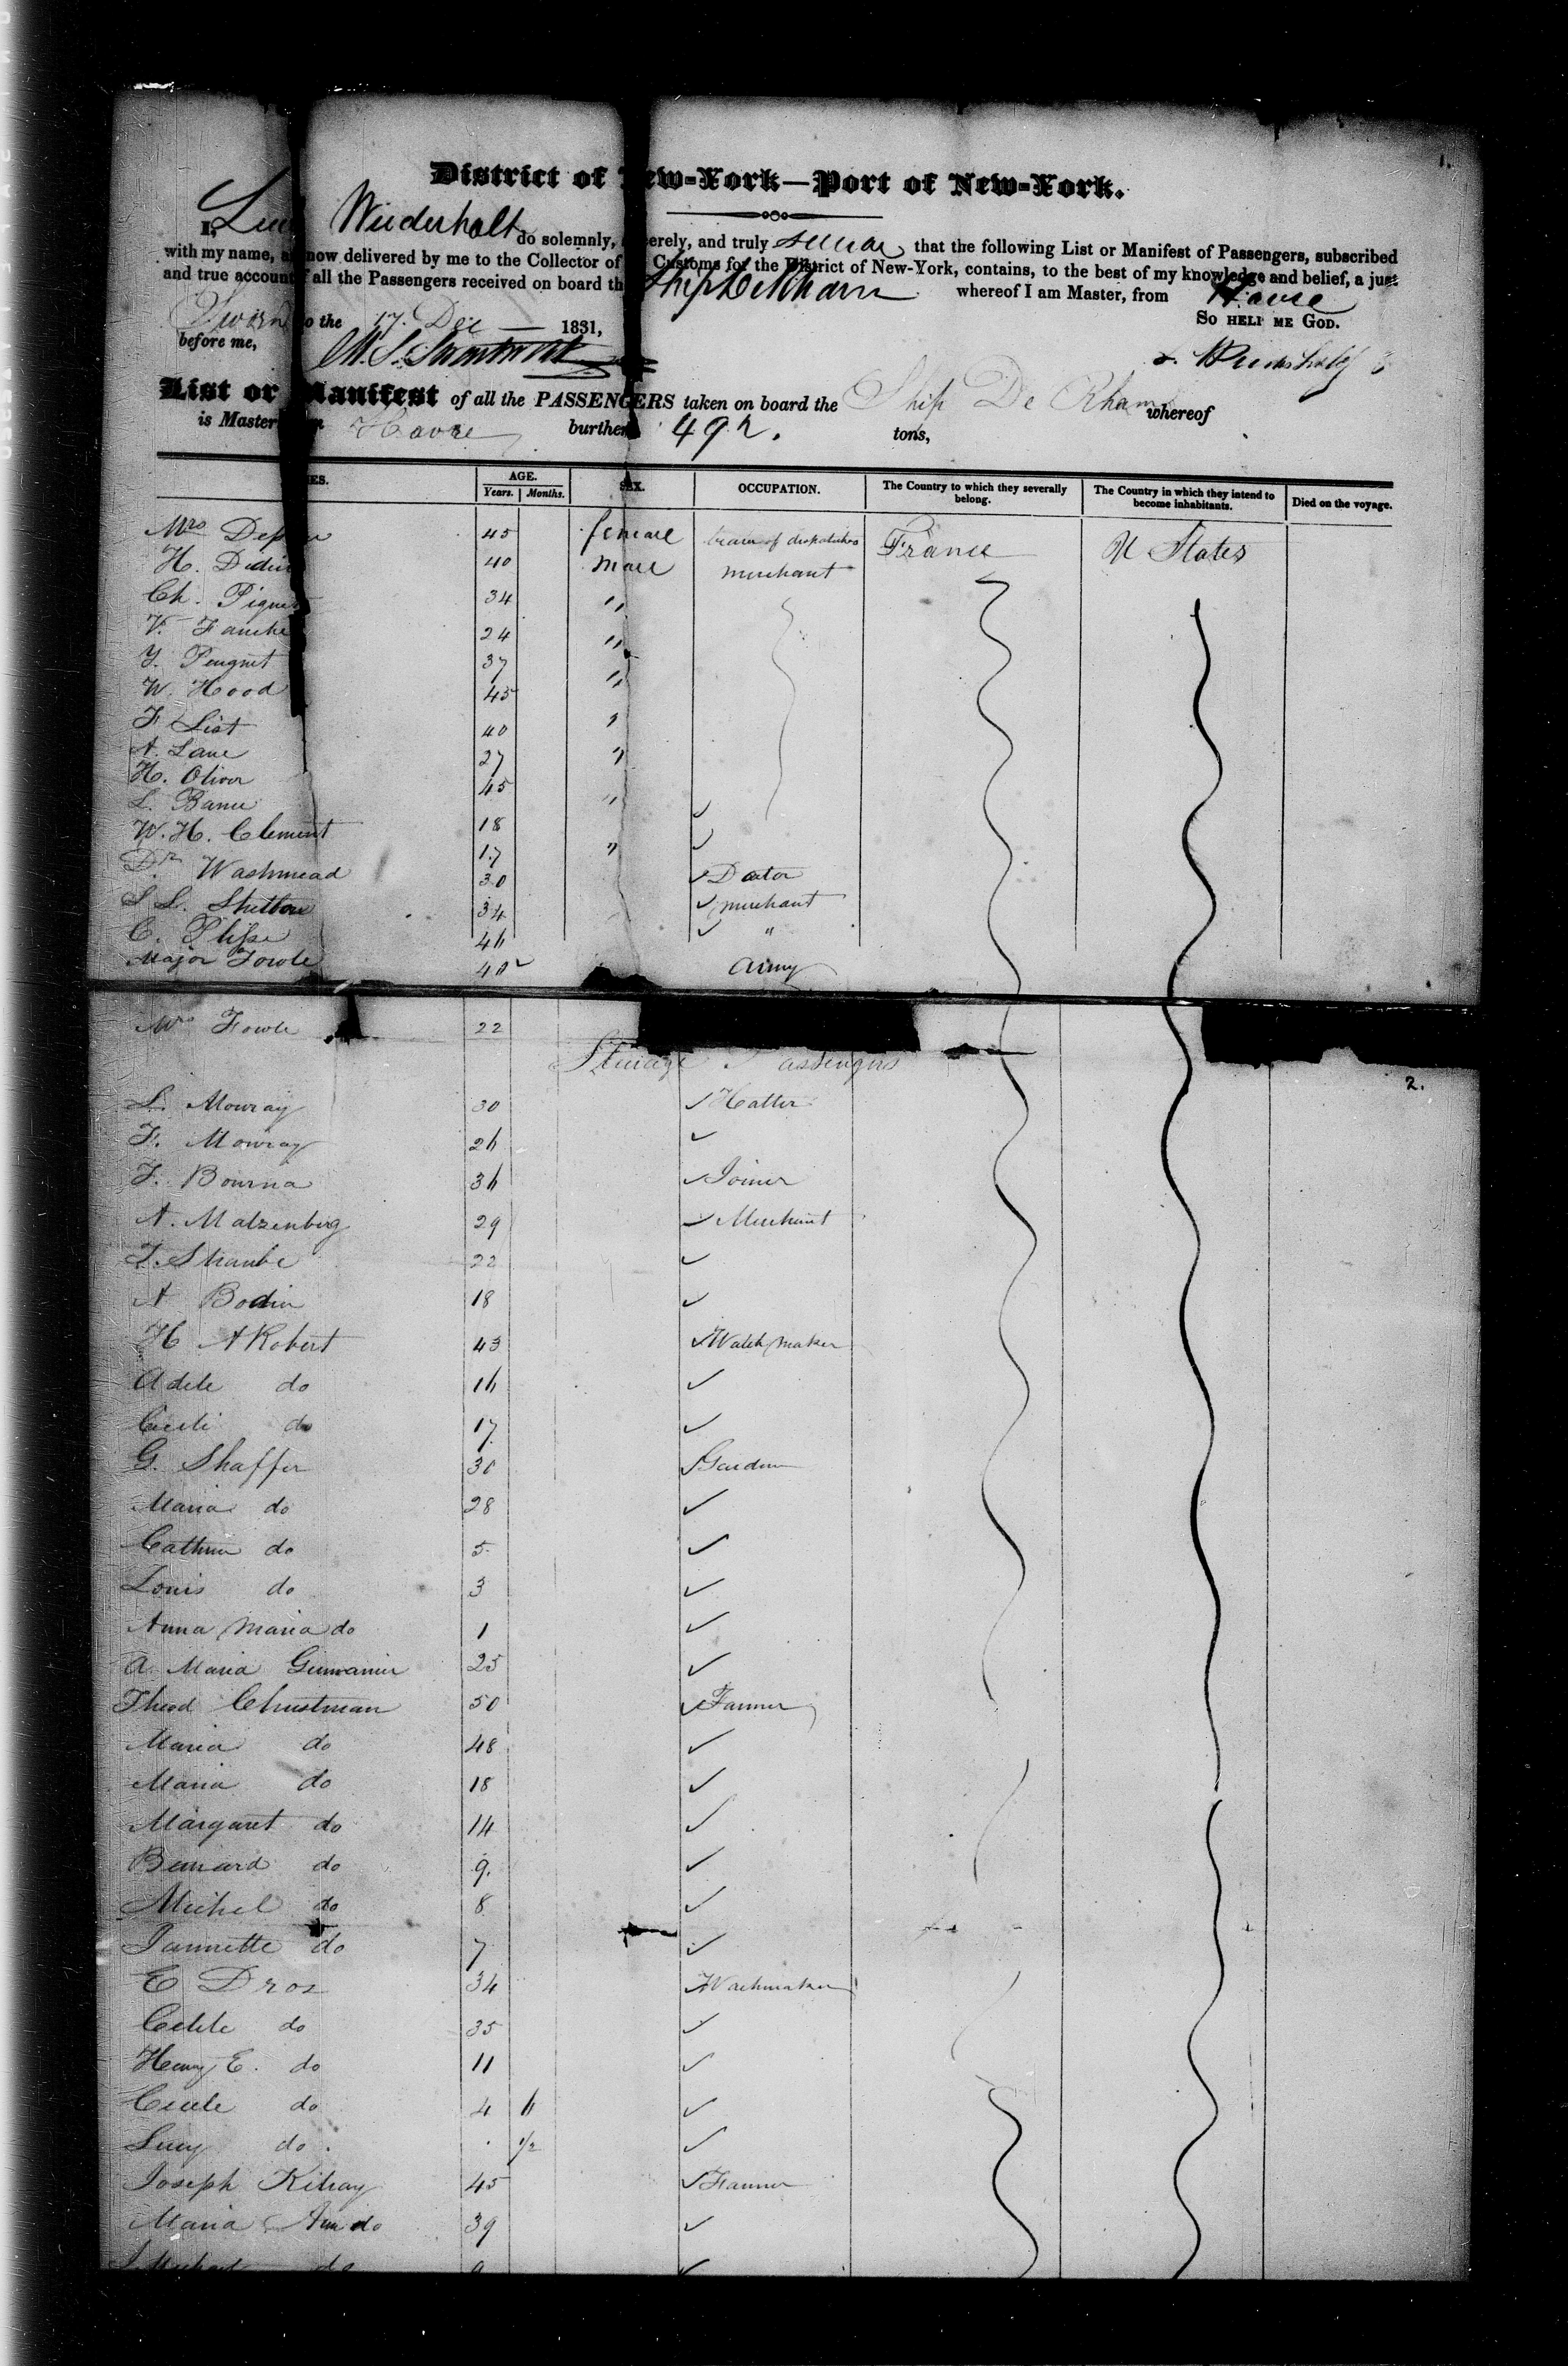 1.
District of New-York—Port of New-York.
I, Wiederholt do solemnly, sincerely, and truly swear that the following List or Manifest of Passengers, subscribed
with my name, and now delivered by me to the Collector of the Customs for the District of New-York, contains, to the best of my knowledge and belief, a just
and true account of all the Passengers received on board the Ship De Rham whereof I am Master, from Havre
Sworn to the 17 Dec 1831, So help me God.
before me,
List or Manifest of all the PASSENGERS taken on board the Ship De Rham whereof
is Master Havre burthen 492. tons,
AGE. SEX. OCCUPATION. The Country to which they severally belong. The Country in which they intend to become inhabitants. Died on the voyage.
Years. Months.
Mrs 45 female bearer of dispatches France U States
H. 40 male merchant
Ch. 34 "
V. 24 "
Y. Peugnet 37 "
W. Hood 45
F List 40 "
A. Lane 27 "
H. Oliver 45
L. 18 "
W. H. Clement 17 "
Dr Washmead 30 Doctor
S L. Shelton 34 merchant
C. "
Major Fowle 40 Army
Mrs Fowle 22
Steerage Passengers
2.
L. Mowray 30 Hatter
F. Mowray 26
F. Bourna 36 Joiner
A. Malzenberg 29 Merchant
T. Straube 22
A Bodin 18
H A Robert 43 Watch maker
Adele do 16
Cecile do 17
G. Shaffer 30 Gardener
Maria do 28
do 5
Louis do 3
Anna Maria do 1
A. Maria 25
Theod Christman 50 Farmer
Maria do 48
Maria do 18
Margaret do 14
Bernard do 9.
Michel do 8
Jannette do 7
E Droz 34 Wachmaker
do 35
Henry E. do 11
Cecile do 4 6
Lucy do . 1/2
Joseph 45 Farmer
Maria Ann do 39
do 9